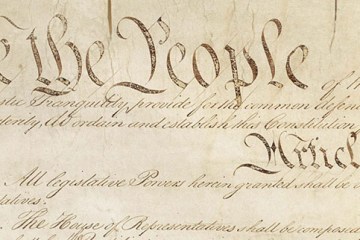 e the People of t
stic Tranquility, provide for the common defen
sterity, do ordain and establish this Constitution
Articl
All legislative Powers herein granted shall be
tatives.
The House of Representatives shall be composed